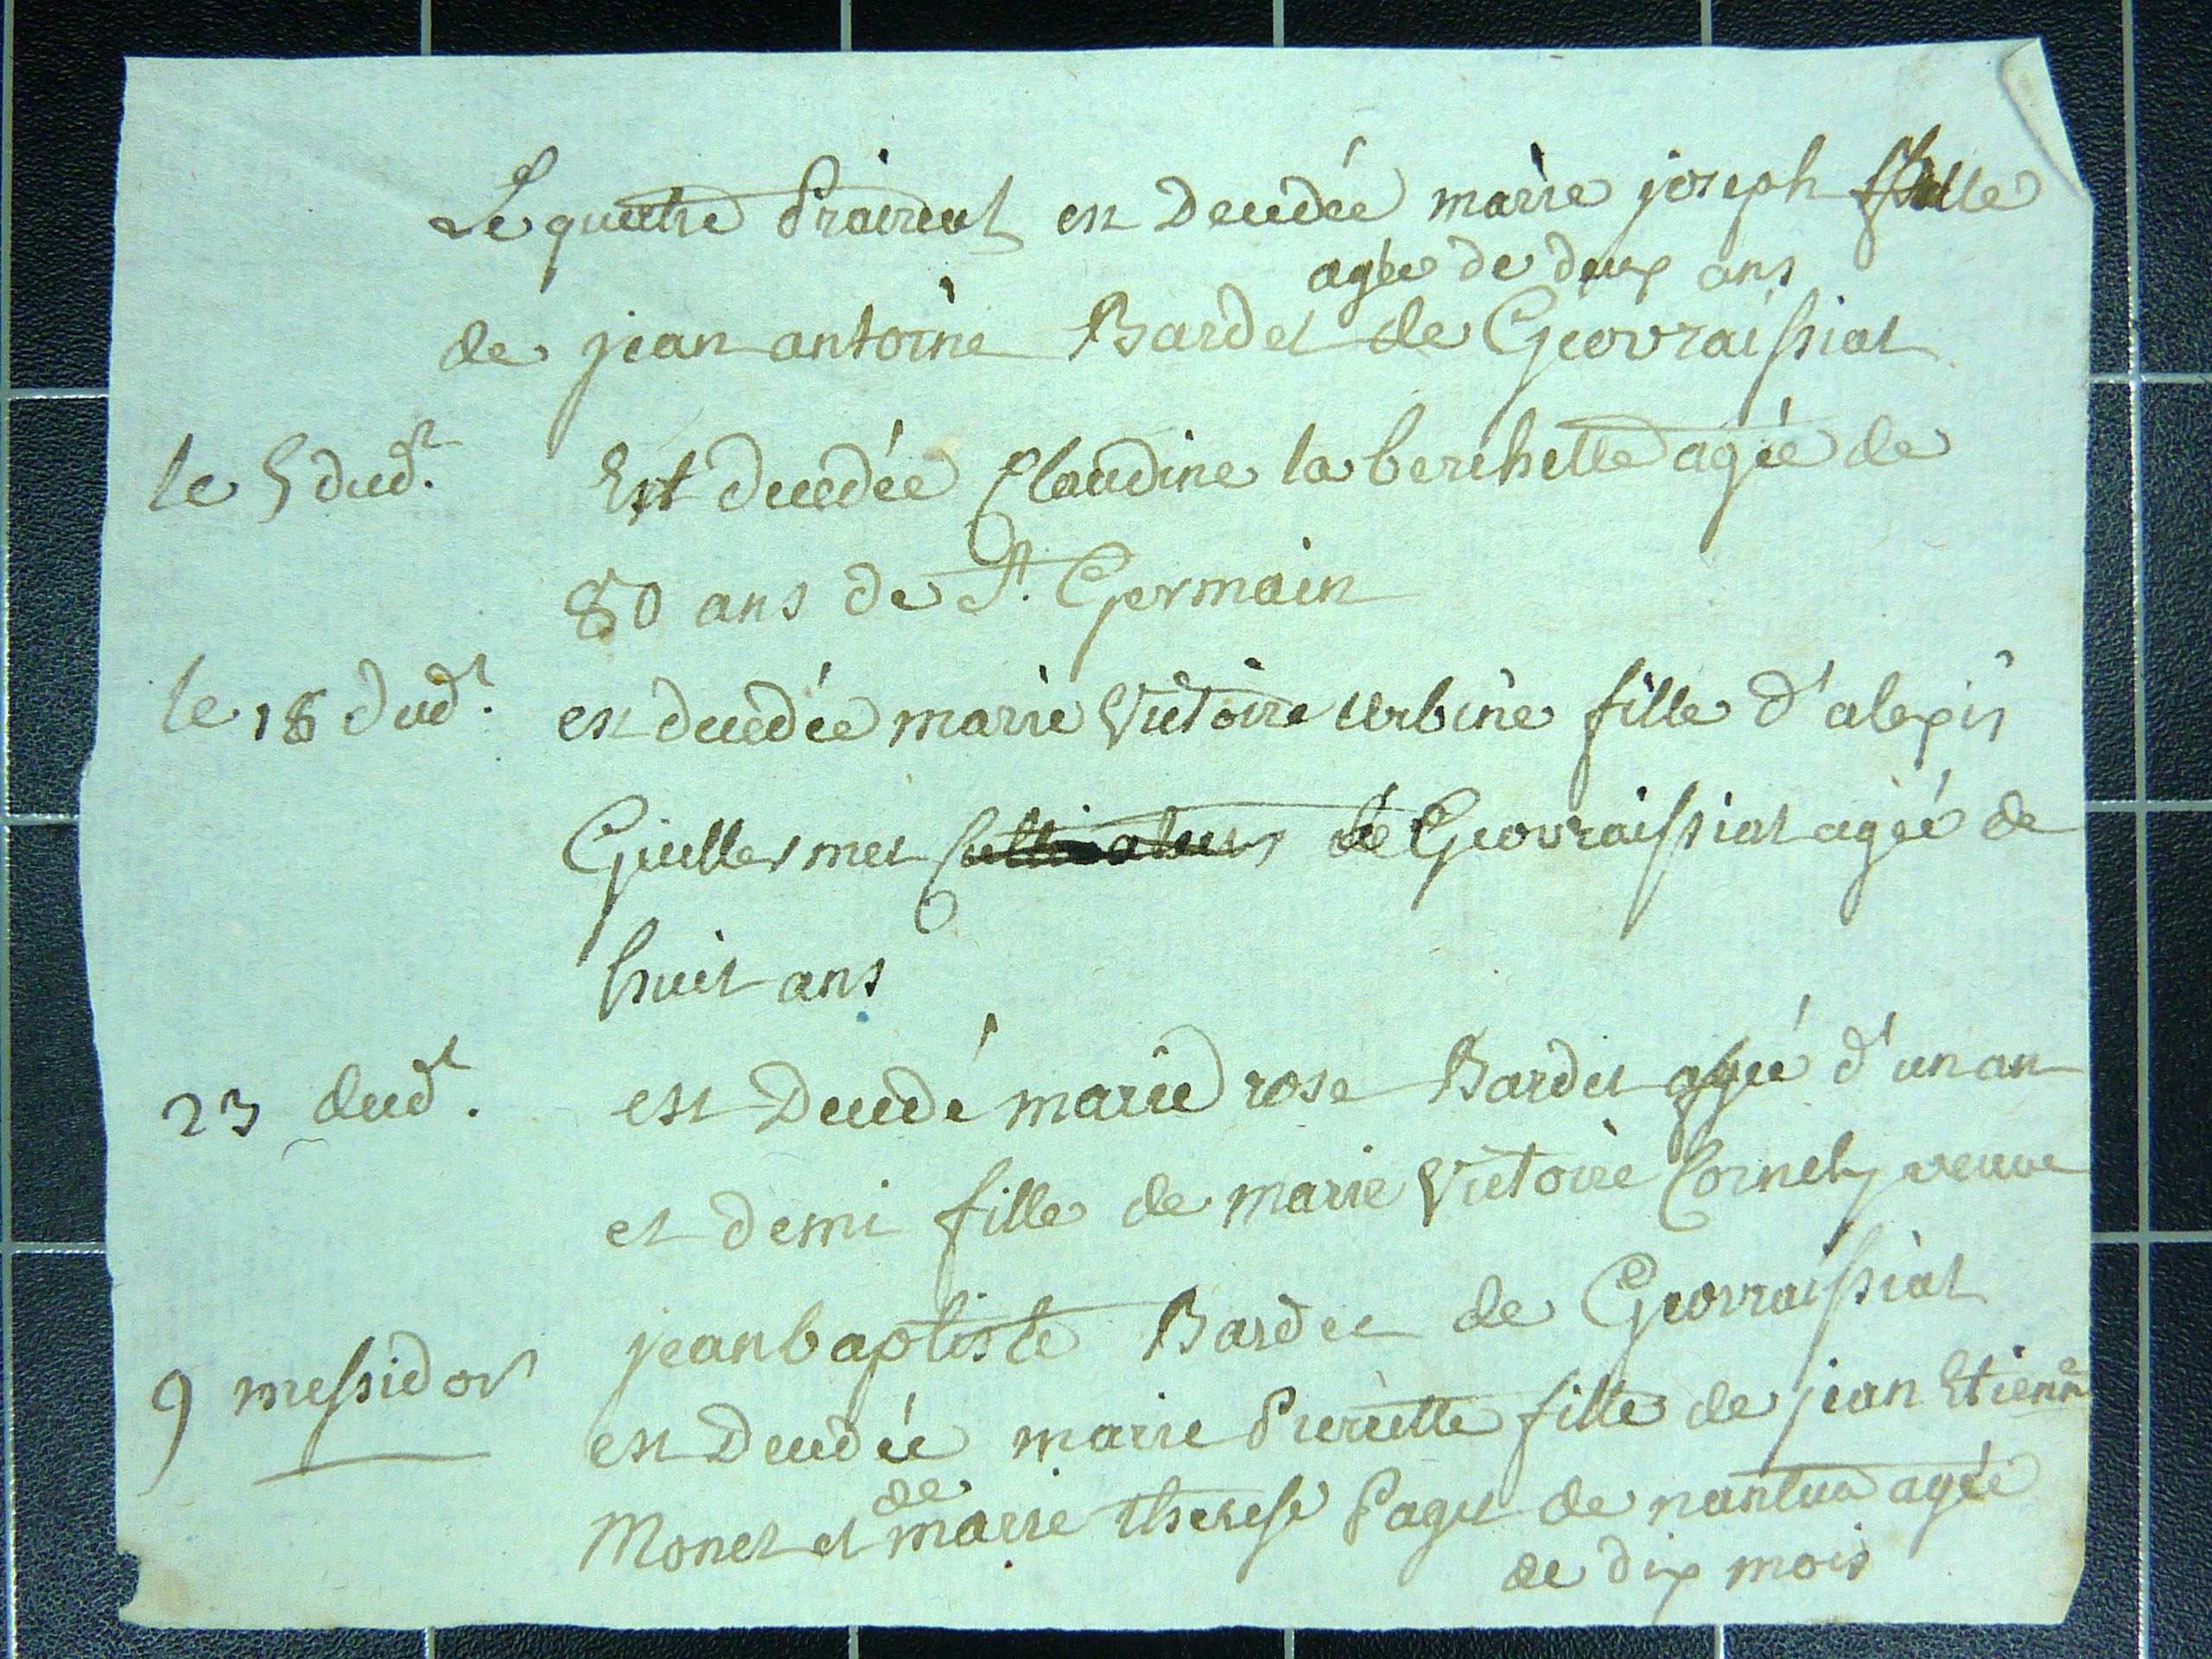 Le quatre Prairial est Decedée marie joseph fille
agée de deux ans
de jean antoine Bardet de Geovraissiat
le 5 dud.t Est decedée Claudine la berchette agée de
80 ans de St. Germain
le 18 dud.t est decedée marie Victoire Urbine fille d'alexis
Guillermet Cultivateur de Geovraissiat agée de
huit ans
23 dud.t est Decedé marie rose Bardet agée d'un an
et demi fille de marie Victoire Cornely veuve
jean baptiste Bardet de Geovraissiat
9 messidor est Decedée marie Pierrette fille de jean Etienne
de
Monet et marie therese Paget de nantua agée
de dix mois